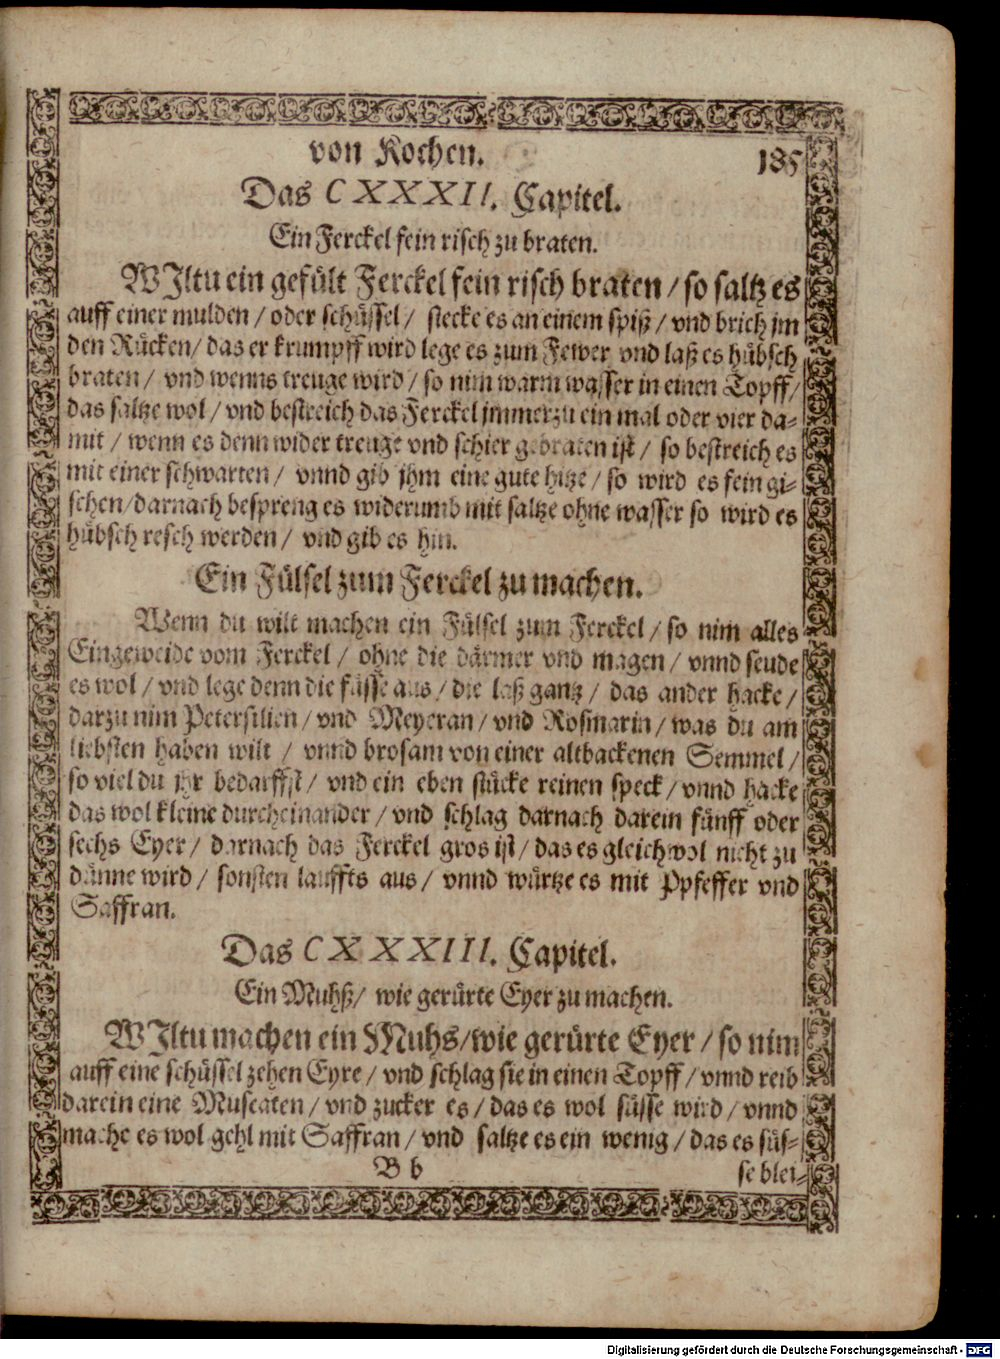 von Kochen. 185
Das CXXXII. Capitel.
Ein Ferckel fein risch zu braten.
WIltu ein gefült Ferckel fein risch braten / so saltz es
auff einer mulden / oder schüssel / stecke es an einem spiß / vnd brich jm
den Rücken / das er krumpff wird lege es zum Fewer vnd laß es hübsch
braten / vnd wenns treuge wird / so nim warm wasser in einen Topff /
das saltze wol / vnd bestreich das Ferckel jmmerzu ein mal oder vier da-
mit / wenn es denn wider treuge vnd schier gebraten ist / so bestreich es
mit einer schwarten / vnnd gib jhm eine gute hitze / so wird es fein gi-
schen / darnach bespreng es widerumb mit saltze ohne wasser so wird es
hübsch resch werden / vnd gib es hin.
Ein Fülsel zum Ferckel zu machen.
Wenn du wilt machen ein Fülsel zum Ferckel / so nim alles
Eingeweide vom Ferckel / ohne die därmer vnd magen / vnnd seude
es wol / vnd lege denn die füsse aus / die laß gantz / das ander hacke /
darzu nim Petersilien / vnd Meyeran / vnd Rosmarin / was du am
liebsten haben wilt / vnnd brosam von einer altbackenen Semmel /
so viel du jhr bedarffst / vnd ein eben stücke reinen speck / vnnd hacke
das wol kleine durcheinander / vnd schlag darnach darein fünff oder
sechs Eyer / darnach das Ferckel gros ist / das es gleichwol nicht zu
dünne wird / sonsten laufts aus / vnnd würtze es mit Ppfeffer vnd
Saffran.
Das CXXXIII. Capitel.
Ein Muhß / wie gerürte Eyer zu machen.
WIltu machen ein Muhs / wie gerürte Eyer / so nim
auff eine schüssel zehen Eyre / vnd schlag sie in einen Topff / vnnd reib
darein eine Muscaten / vnd zucker es / das es wol süsse wird / vnnd
mache es wol gehl mit Saffran / vnd saltze es ein wenig / das es süs-
B b se blei-
Digitalisierung gefördert durch die Deutsche Forschungsgemeinschaft - DFG